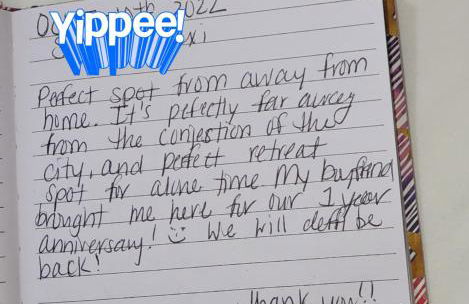 10th 2022
Yippee!
Perfect spot from away from
home. It's pefectly far away
from the conjestion of the
city, and perfect retreat
spot for alone time. My boyfriend
brought me here for our 1 year
anniversary! We will deff be
back!
Thank you!!